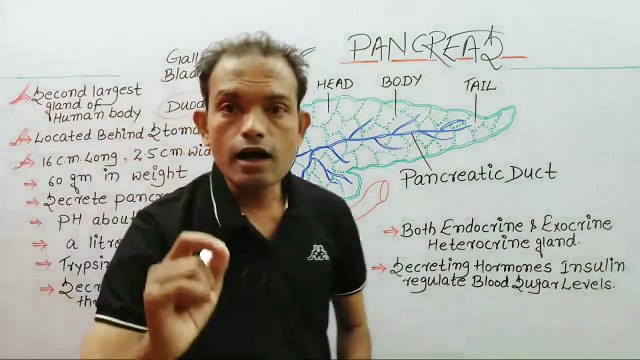 PANCREAS
Gall
Blad
HEAD
BODY
TAIL
Second largest
gland of
Human body
Duod
Located Behind Stoma
16 cm. Long, 2.5 cm. wid
60 gm in weight
Pancreatic Duct
Secrete pancr
PH about
a litre
Trypsin
Secr
thr
Both Endocrine & Exocrine
Heterocrine gland.
Secreting Hormones Insulin
regulate Blood Sugar Levels.